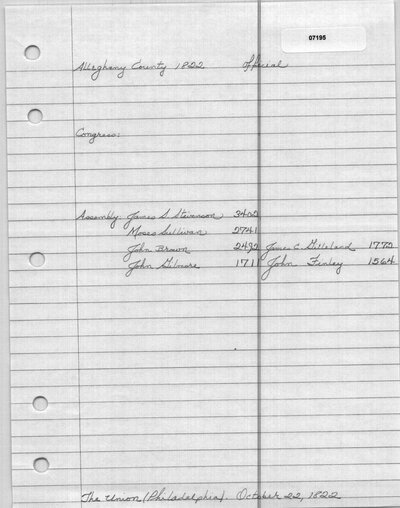 07195
Alleghany County 1822 Official
Congress:
Assembly. James S Stevenson 3422
Moses Sullivan 2741
John Brown 2492 James C Gilleland 1772
John Gilmore 1711 John Finley 1564
The Union (Philadelphia). October 22, 1822